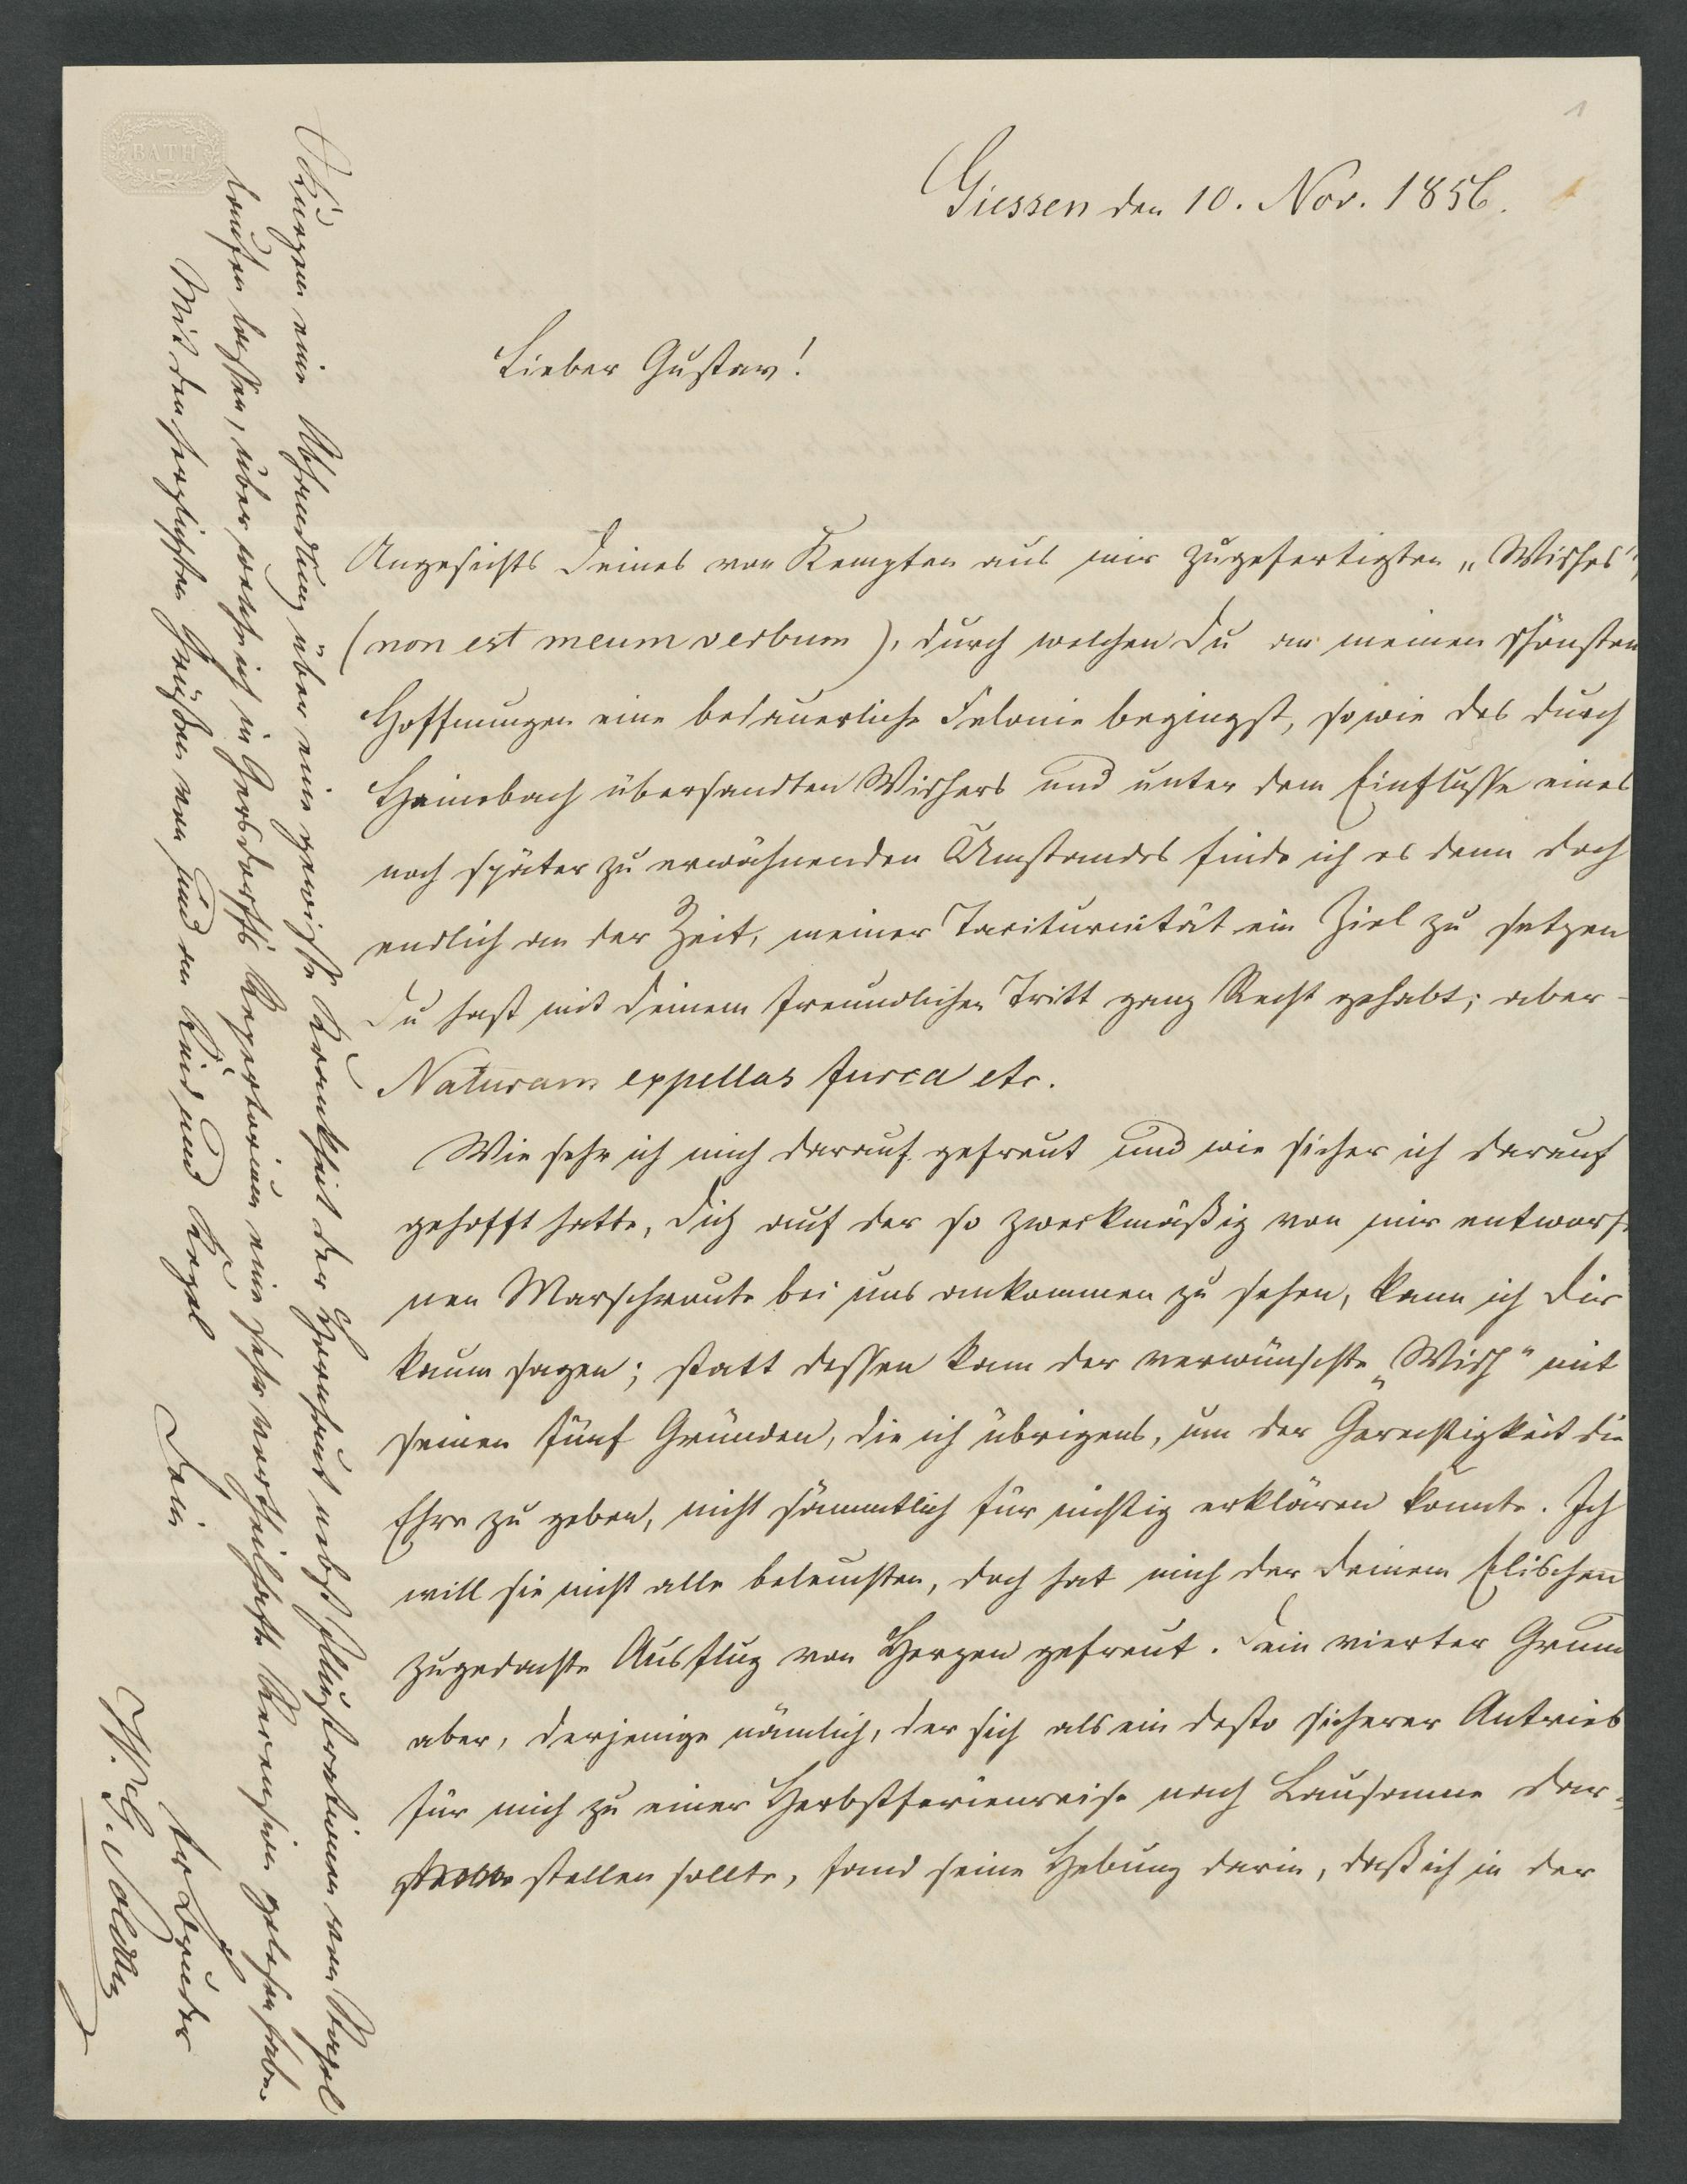 1
Giessen den 10. Nov. 1856.
Lieber Gustav!
Angesichts Deines von Kempten aus mir zugefertigten „Wisches“,
(non est meum verbum), durch welchen Du an meinen schönsten
Hoffnungen eine bedauerliche Felonie begingst, sowie des durch
Heimbach übersandten Wischers und unter dem Einflusse eines
noch später zu erwähnenden Umstandes finde ich es denn doch
endlich an der Zeit, meiner Taciturnität ein Ziel zu setzen
Du hast mit Deinem freundlichen Tritt ganz Recht gehabt; aber -
Naturam expellas furca etc.
Wie sehr ich mich darauf gefreut und wie sicher ich darauf
gehofft hatte, Dich auf der so zweckmäßig von mir entworfe
nen Marschroute bei uns ankommen zu sehen, kann ich Dir
kaum sagen; statt dessen kam der verwünschte „Wisch“ mit
seinen fünf Gründen, die ich übrigens, um der Gerechtigkeit die
Ehre zu geben, nicht sämmtlich für nichtig erklären konnte. Ich
will sie nicht alle beleuchten, doch hat mich der Deinem Elischen
zugedachte Ausflug von Herzen gefreut. Dein vierter Grund
aber, derjenige nämlich, der sich als ein desto sicherer Antrieb
für mich zu einer Herbstferienreise nach Lausanne dar-
stellen sollte, fand seine Hebung darin, daß ich in der
eine Abhandlung über eine gewisse Krankheit der Hornhaut nebst Illustrationen vom Stapel
laufen lassen, über welche ich in Gersdorff's Repertorium eine sehr vortheilhafte Recension gelesen habe.
Mit den herzlichsten Grüßen von und an Kind und Kegel
Dein
tr Bruder
W. G. Soldan
BATH